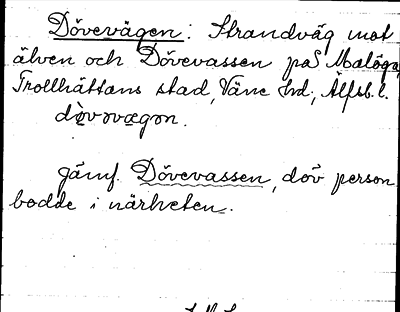 Dövevägen: Strandväg mot
älven och Dövevassen på Malöga,
Trollhättans stad, Väne hd., Älfsb. l.
dø̀vəvægən.
Jämf. Dövevassen, döv person
bodde i närheten.